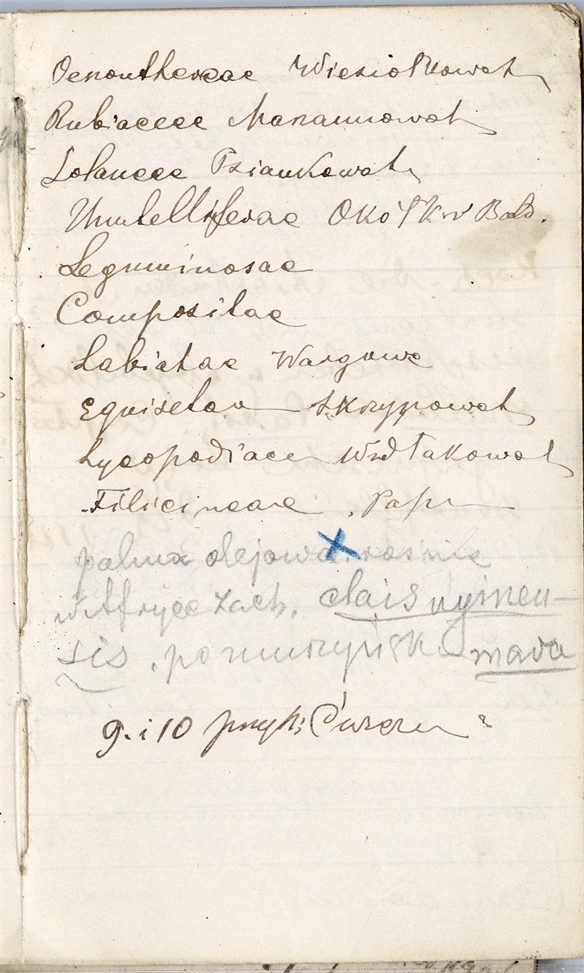 Oenothereae Wiesiołkowat
Rubiaceae Marzannowat
Solaneae Psiankowat
Umbelliferae Okółk.
Leguminosae
Compositae
Labiatae Wargowe
Equiseta Skrzypowat
Lycopodiace Widłakowat
Filicineae Papr
palma olejowa rośnie
w Afryce Zach. elais gyineen-
sis. po murzyńsk mava
9. i 10